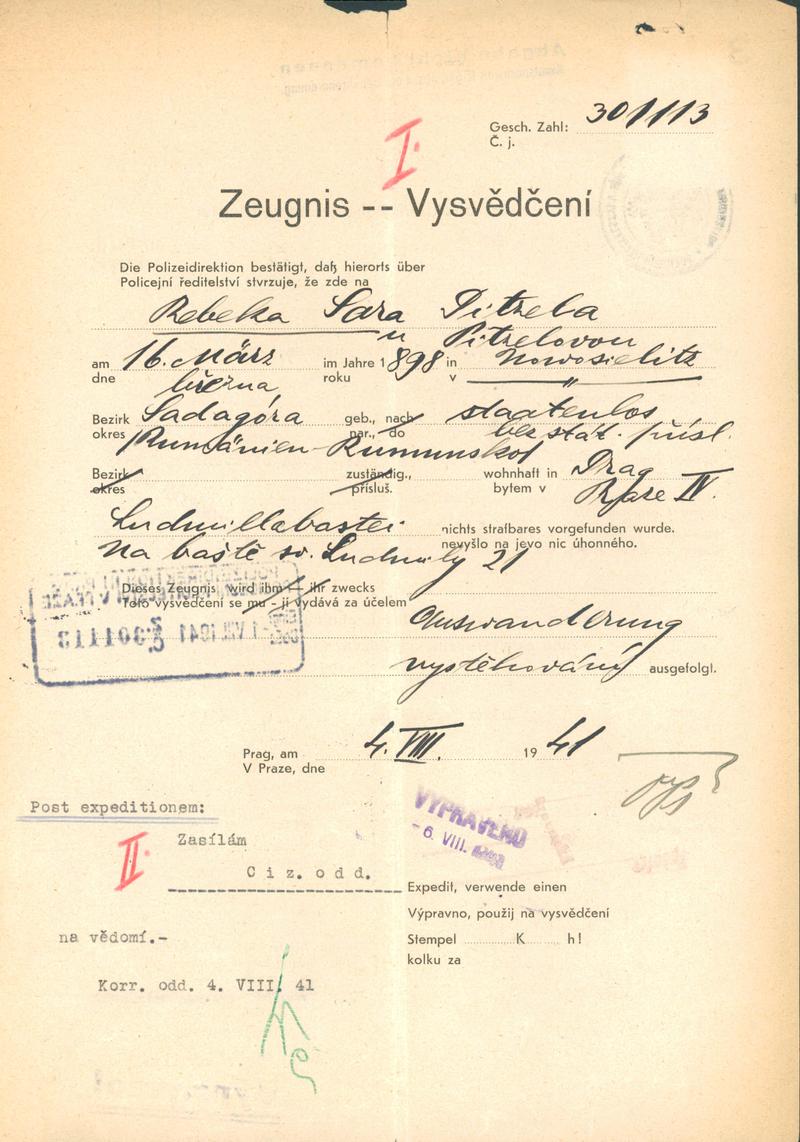 Gesch. Zahl: 301113
Č. j.
I.
Zeugnis -- Vysvědčení
Die Polizeidirektion bestätigt, daß hierorts über
Policejní ředitelství stvrzuje, že zde na
Rebeka Sara Pitzela
u Pitzelovou
am 16. März im Jahre 1898 in Nowosielitz
dne března roku v "
Bezirk Sadagóra geb., nach staatenlos
okres /Rumänien-Rumunsko/ nar., do bez stát. přísl.
Bezirk zuständig., wohnhaft in Prag
okres přísluš. bytem v Praze IV.
Ludmillabastei nichts strafbares vorgefunden wurde.
Na baště sv. Ludmily 21 nevyšlo na jevo nic úhonného.
Dieses Zeugnis wird ihm — ihr zwecks
Toto vysvědčení se mu - jí vydává za účelem
1 VIII 1941
301113
Auswanderung
vystěhování ausgefolgt.
Prag, am 4. VIII. 1941
V Praze, dne
Post expeditionem:
VYPRAVENO
- 6. VIII.
II.
Zasílám
Ciz. odd.
Expedit, verwende einen
Výpravno, použij na vysvědčení
na vědomí.-
Stempel K h!
kolku za
Korr. odd. 4. VIII. 41